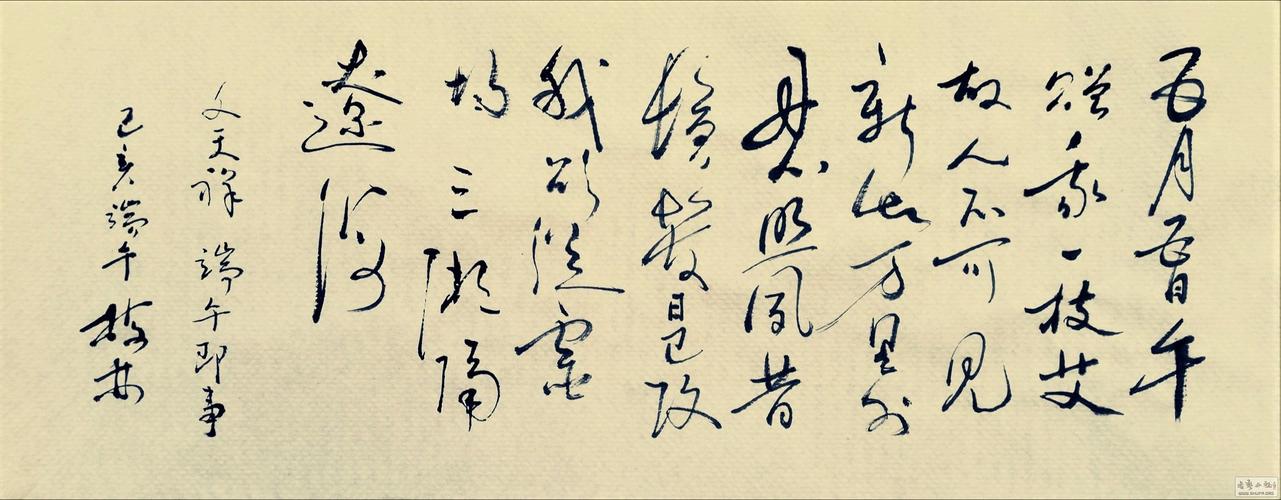 五月五日午
赠我一枝艾
故人不可见
新知万里外
丹心照夙昔
鬓髮日已改
我欲从靈
均三湘隔
遼海
文天祥 端午即事
己亥端午